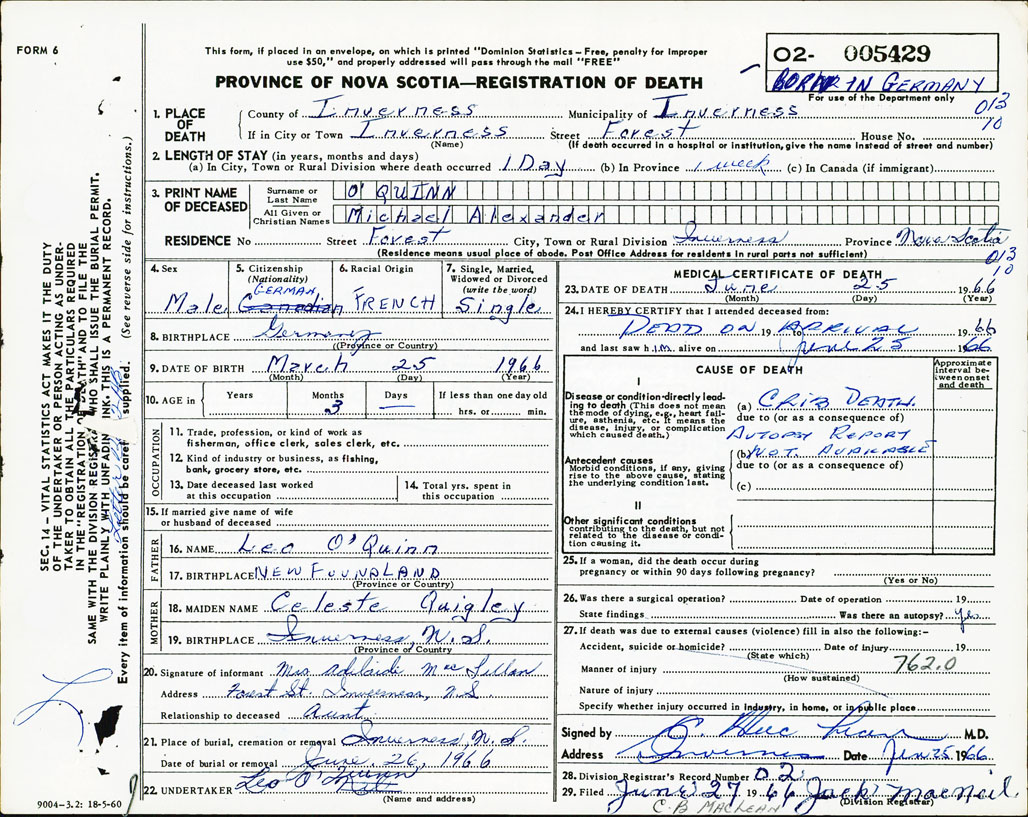 FORM 6
This form, if placed in an envelope, on which is printed "Dominion Statistics – Free, penalty for improper
use $50," and properly addressed will pass through the mail "FREE"
PROVINCE OF NOVA SCOTIA—REGISTRATION OF DEATH
02- 005429
BORN IN GERMANY
For use of the Department only
013
10
1. PLACE OF DEATH
County of Inverness Municipality of Inverness
If in City or Town Inverness Street Forest House No.
(Name) (If death occurred in a hospital or institution, give the name instead of street and number)
2. LENGTH OF STAY (in years, months and days)
(a) In City, Town or Rural Division where death occurred 1 Day (b) In Province 1 week (c) In Canada (if immigrant)
3. PRINT NAME OF DECEASED
Surname or Last Name O'QUINN
All Given or Christian Names Michael Alexander
RESIDENCE No Street Forest City, Town or Rural Division Inverness Province Nova Scotia
(Residence means usual place of abode. Post Office Address for residents in rural parts not sufficient)
013
10
4. Sex Male
5. Citizenship (Nationality) GERMAN Canadian
6. Racial Origin FRENCH
7. Single, Married, Widowed or Divorced (write the word) Single
8. BIRTHPLACE Germany
(Province or Country)
9. DATE OF BIRTH March 25 1966
(Month) (Day) (Year)
10. AGE in Years Months 3 Days — If less than one day old
hrs. or min.
OCCUPATION
11. Trade, profession, or kind of work as
fisherman, office clerk, sales clerk, etc.
12. Kind of industry or business, as fishing,
bank, grocery store, etc.
13. Date deceased last worked
at this occupation
14. Total yrs. spent in
this occupation
15. If married give name of wife
or husband of deceased
FATHER
16. NAME Leo O'Quinn
17. BIRTHPLACE NEW FOUNDLAND
(Province or Country)
MOTHER
18. MAIDEN NAME Celeste Quigley
19. BIRTHPLACE Inverness, N.S.
(Province or Country)
20. Signature of informant Mrs Adelaide MacLellan
Address Forest St. Inverness, N.S.
Relationship to deceased Aunt
21. Place of burial, cremation or removal Inverness, N.S.
Date of burial or removal June 26, 1966
22. UNDERTAKER Leo O'Quinn
(Name and address)
9004–3.2: 18-5-60
MEDICAL CERTIFICATE OF DEATH
23. DATE OF DEATH June 25 1966
(Month) (Day) (Year)
24. I HEREBY CERTIFY that I attended deceased from:
DEAD ON 19 to ARRIVAL 1966
and last saw h.im. alive on June 25 1966
CAUSE OF DEATH
Approximate interval between onset and death
I
Disease or condition directly leading to death (This does not mean the mode of dying, e.g., heart failure, asthenia, etc. It means the disease, injury, or complication which caused death.)
(a) CRIB DEATH.
due to (or as a consequence of)
AUTOPSY REPORT
(b) NOT AVAILABLE
due to (or as a consequence of)
(c)
Antecedent causes
Morbid conditions, if any, giving rise to the above cause, stating the underlying condition last.
II
Other significant conditions
contributing to the death, but not related to the disease or condition causing it.
25. If a woman, did the death occur during
pregnancy or within 90 days following pregnancy?
(Yes or No)
26. Was there a surgical operation? Date of operation 19
State findings Was there an autopsy? Yes
27. If death was due to external causes (violence) fill in also the following:–
Accident, suicide or homicide? Date of injury 19
(State which)
762.0
Manner of injury
(How sustained)
Nature of injury
Specify whether injury occurred in industry, in home, or in public place
Signed by M.D.
Address Inverness Date Jun 25 1966
28. Division Registrar's Record Number 02
29. Filed June 27 1966 Jack MacNeil
(Division Registrar)
C.B MACLEAN
SEC. 14 – VITAL STATISTICS ACT MAKES IT THE DUTY
OF THE UNDERTAKER OR PERSON ACTING AS UNDER-
TAKER TO OBTAIN ALL THE PARTICULARS REQUIRED
IN THE "REGISTRATION OF DEATH" AND TO FILE THE
SAME WITH THE DIVISION REGISTRAR WHO SHALL ISSUE THE BURIAL PERMIT.
WRITE PLAINLY WITH UNFADING INK. THIS IS A PERMANENT RECORD.
Every item of information should be carefully supplied. (See reverse side for instructions.)